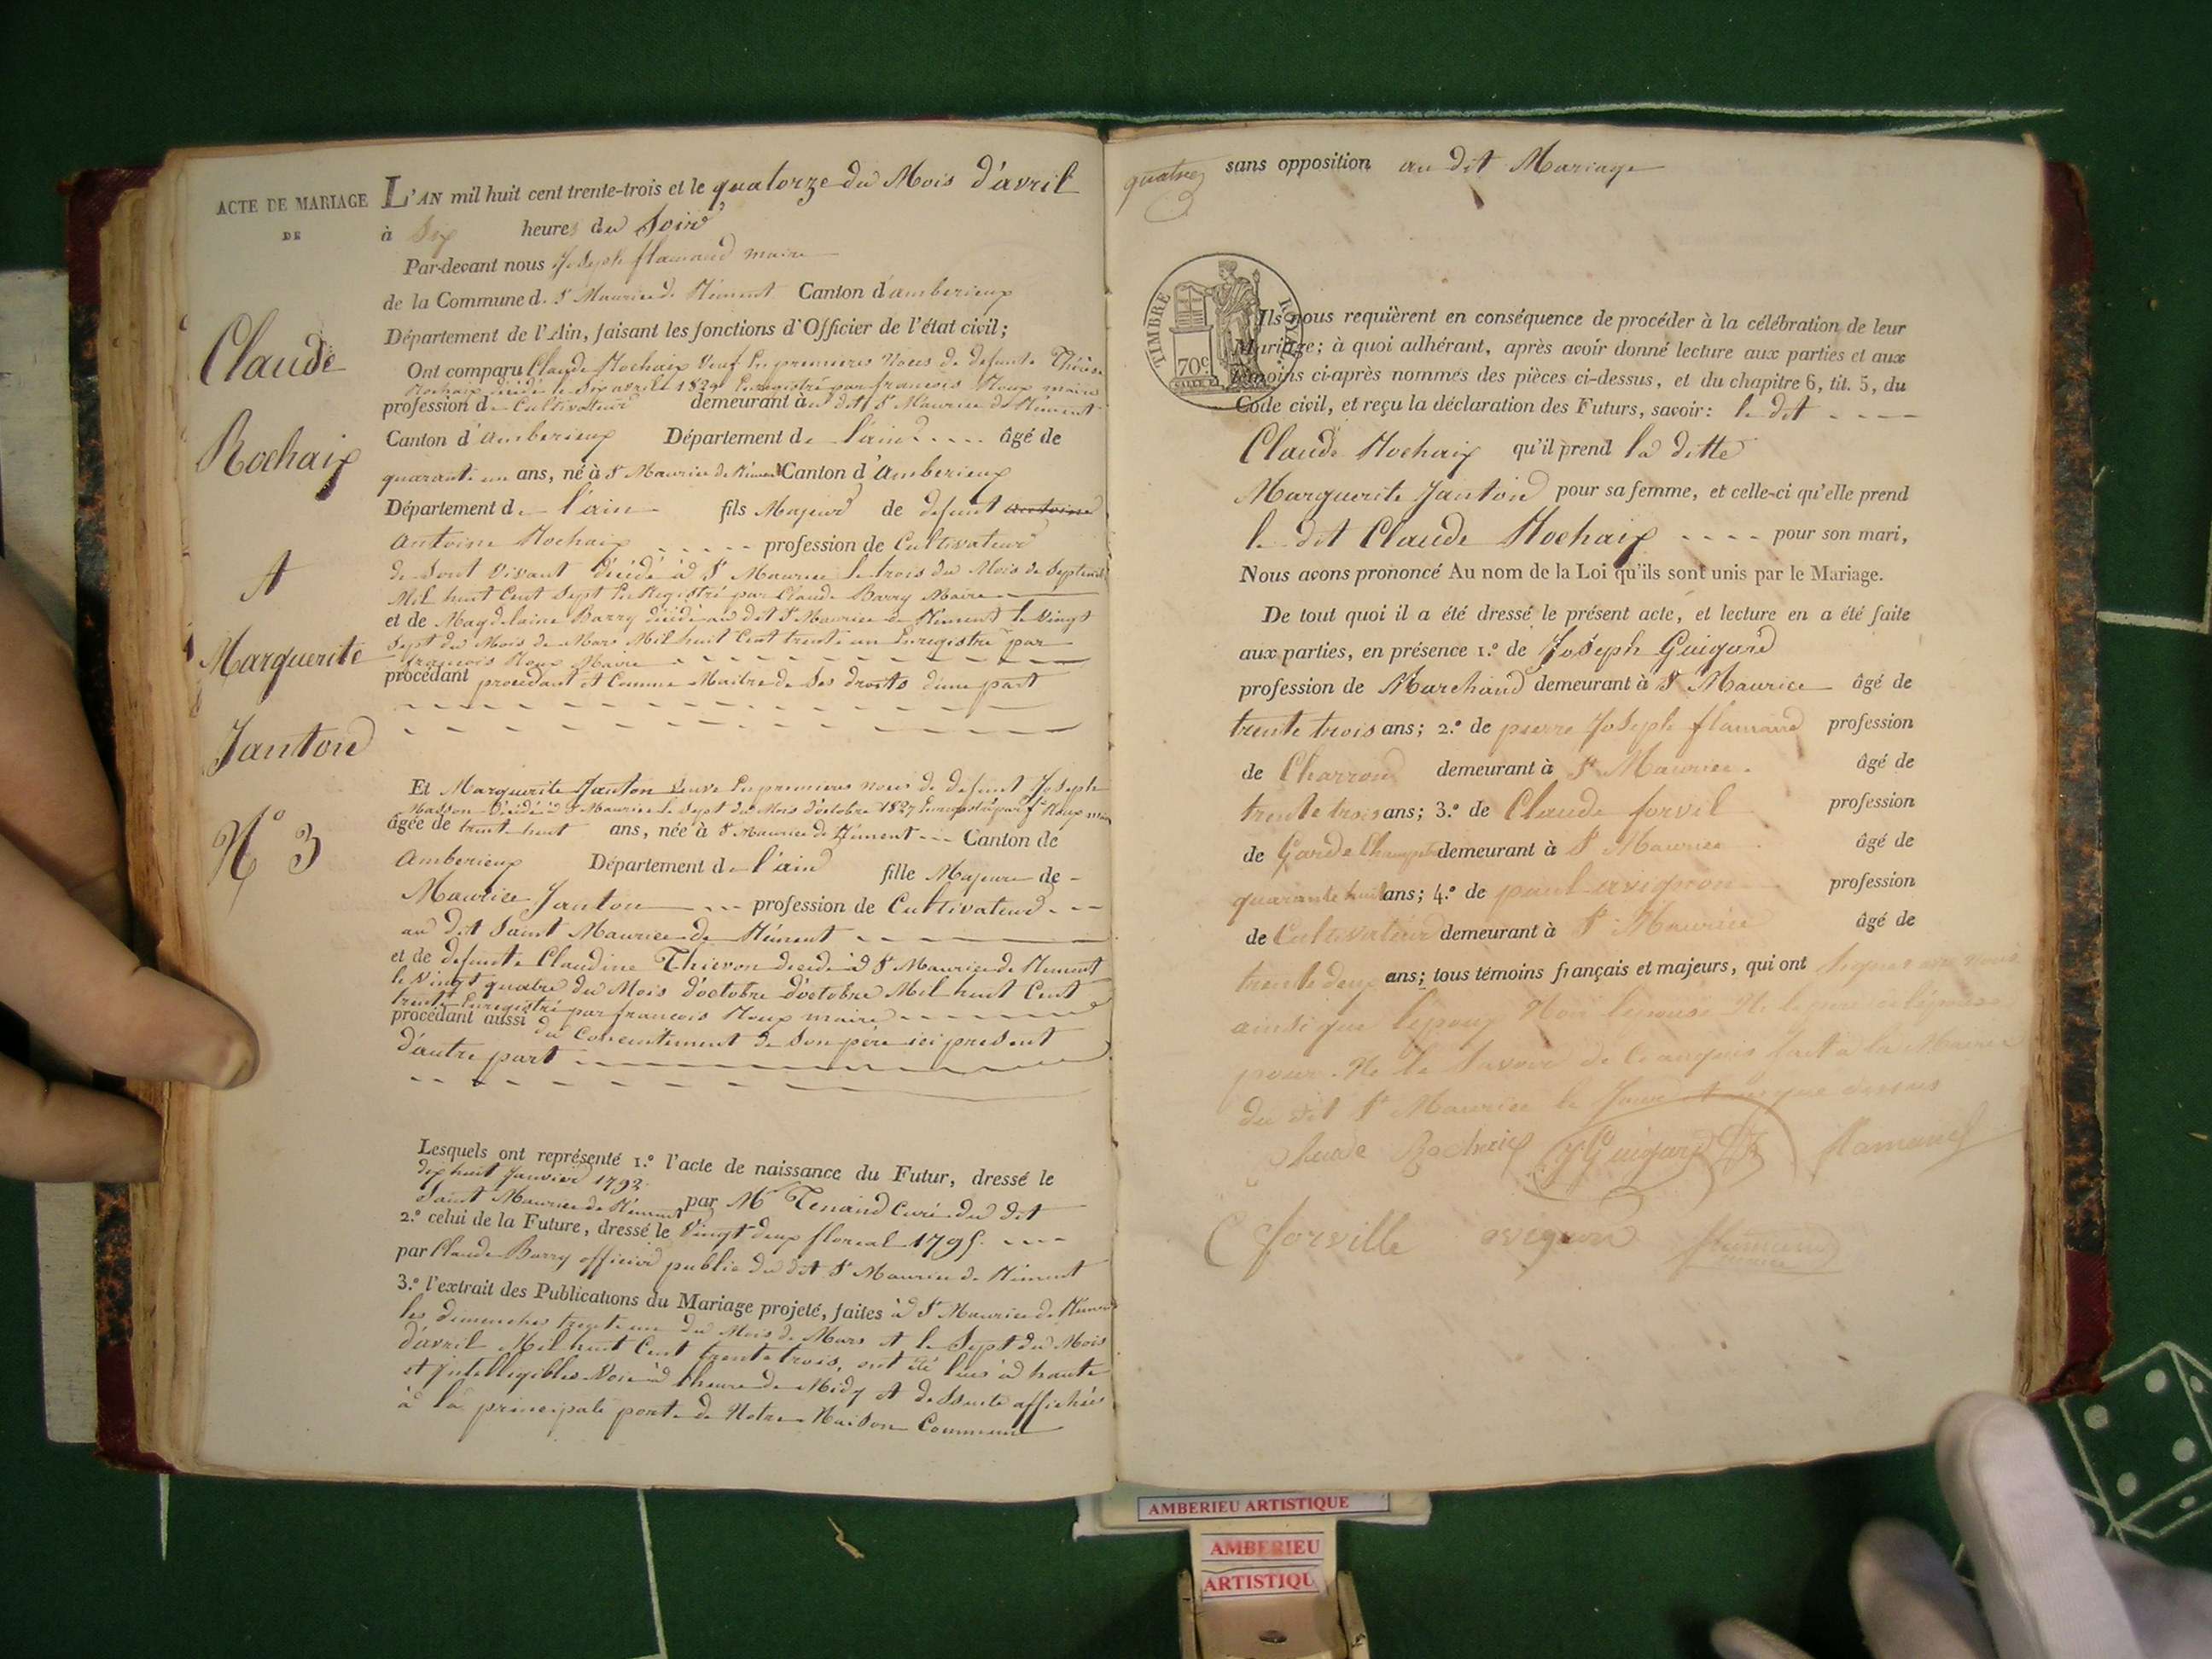 ACTE DE MARIAGE
DE
Claude
Rochaix
A
Marguerite
Janton
N° 3
L'AN mil huit cent trente-trois et le quatorze du Mois d'avril
à Six heures du Soir
Par-devant nous Joseph flamand maire
de la Commune d. St Maurice de Rément Canton d'amberieux
Département de l'Ain, faisant les fonctions d'Officier de l'état civil;
Ont comparu Claude Rochaix Veuf En premieres Noces de defunte Thérèse
Rochaix décédé le Six avril 1829 Enregistré par francois Roux maire
profession de Cultivateur demeurant au dit St Maurice de Rément
Canton d'amberieux Département de l'ain âgé de
quarante un ans, né à St Maurice de Rément Canton d'Amberieux
Département de l'ain fils Majeur de defunt antoine
Antoine Rochaix profession de Cultivateur
de Sont Vivant décédé à St Maurice le trois du Mois de Septembre
Mil huit Cent Sept En Registré par Claude Barry Maire
et de Magdelaine Barry décédé au dit St Maurice de Rement le Vingt
Sept du Mois de Mars Mil huit Cent trente un Enregistré par
francois Roux Maire
procédant procedant et Comme Maitre de Ses droits d'une part
Et Marguerite Janton Veuve En premieres noces de defunt Joseph
Masson Décédé à St Maurice le Sept du Mois d'octobre 1827 Enregistré par f. Roux maire
âgée de trente huit ans, née à St Maurice de Rément Canton de
Amberieux Département de l'ain fille Majeure de
Maurice Janton profession de Cultivateur
au dit Saint Maurice de Rément
et de defunte Claudine Thievon decedé à St Maurice de Rement
le Vingt quatre du Mois d'octobre d'octobre Mil huit Cent
trente Enregistré par francois Roux maire
procédant aussi du Consentement de Son père ici present
d'autre part
Lesquels ont représenté 1.º l'acte de naissance du Futur, dressé le
dix huit Janvier 1792. par Mr Tenand Curé du dit
Saint Maurice de Rément
2.º celui de la Future, dressé le Vingt deux floreal 1795.
par Claude Barry officier public du dit St Maurice de Rément
3.º l'extrait des Publications du Mariage projeté, faites à St Maurice de Rément
les dimanches trente un du Mois de Mars et le Sept du Mois
d'avril Mil huit Cent trente trois, ont été lues à haute
et Intelligibles Voie à l'heure de Midy et de Suite affichées
à la principale porte de Notre Maison Commune
quatre
sans opposition au dit Mariage
TIMBRE ROYAL
70c
Ils nous requièrent en conséquence de procéder à la célébration de leur
Mariage; à quoi adhérant, après avoir donné lecture aux parties et aux
témoins ci-après nommés des pièces ci-dessus, et du chapitre 6, tit. 5, du
Code civil, et reçu la déclaration des Futurs, savoir: le dit
Claude Rochaix qu'il prend la ditte
Marguerite Janton pour sa femme, et celle-ci qu'elle prend
le dit Claude Rochaix pour son mari,
Nous avons prononcé Au nom de la Loi qu'ils sont unis par le Mariage.
De tout quoi il a été dressé le présent acte, et lecture en a été faite
aux parties, en présence 1.º de Joseph Guigard
profession de Marchand demeurant à St Maurice âgé de
trente trois ans; 2.º de pierre Joseph flamand profession
de Charron demeurant à St Maurice. âgé de
trente trois ans; 3.º de Claude forvil profession
de Garde Champêtre demeurant à St Maurice âgé de
quarante huit ans; 4.º de paul avignon profession
de Cultivateur demeurant à St Maurice âgé de
trente deux ans; tous témoins français et majeurs, qui ont Signés avec nous
ainsi que l'epoux Non l'epouse Ni le père de l'épouse
pour Ne le Savoir de Ce anquis fait à la Mairie
du dit St Maurice le Jour et an que dessus
Claude Rochaix J Guigard flamand
C forville avignon flamand
maire
AMBERIEU ARTISTIQUE
AMBERIEU
ARTISTIQU